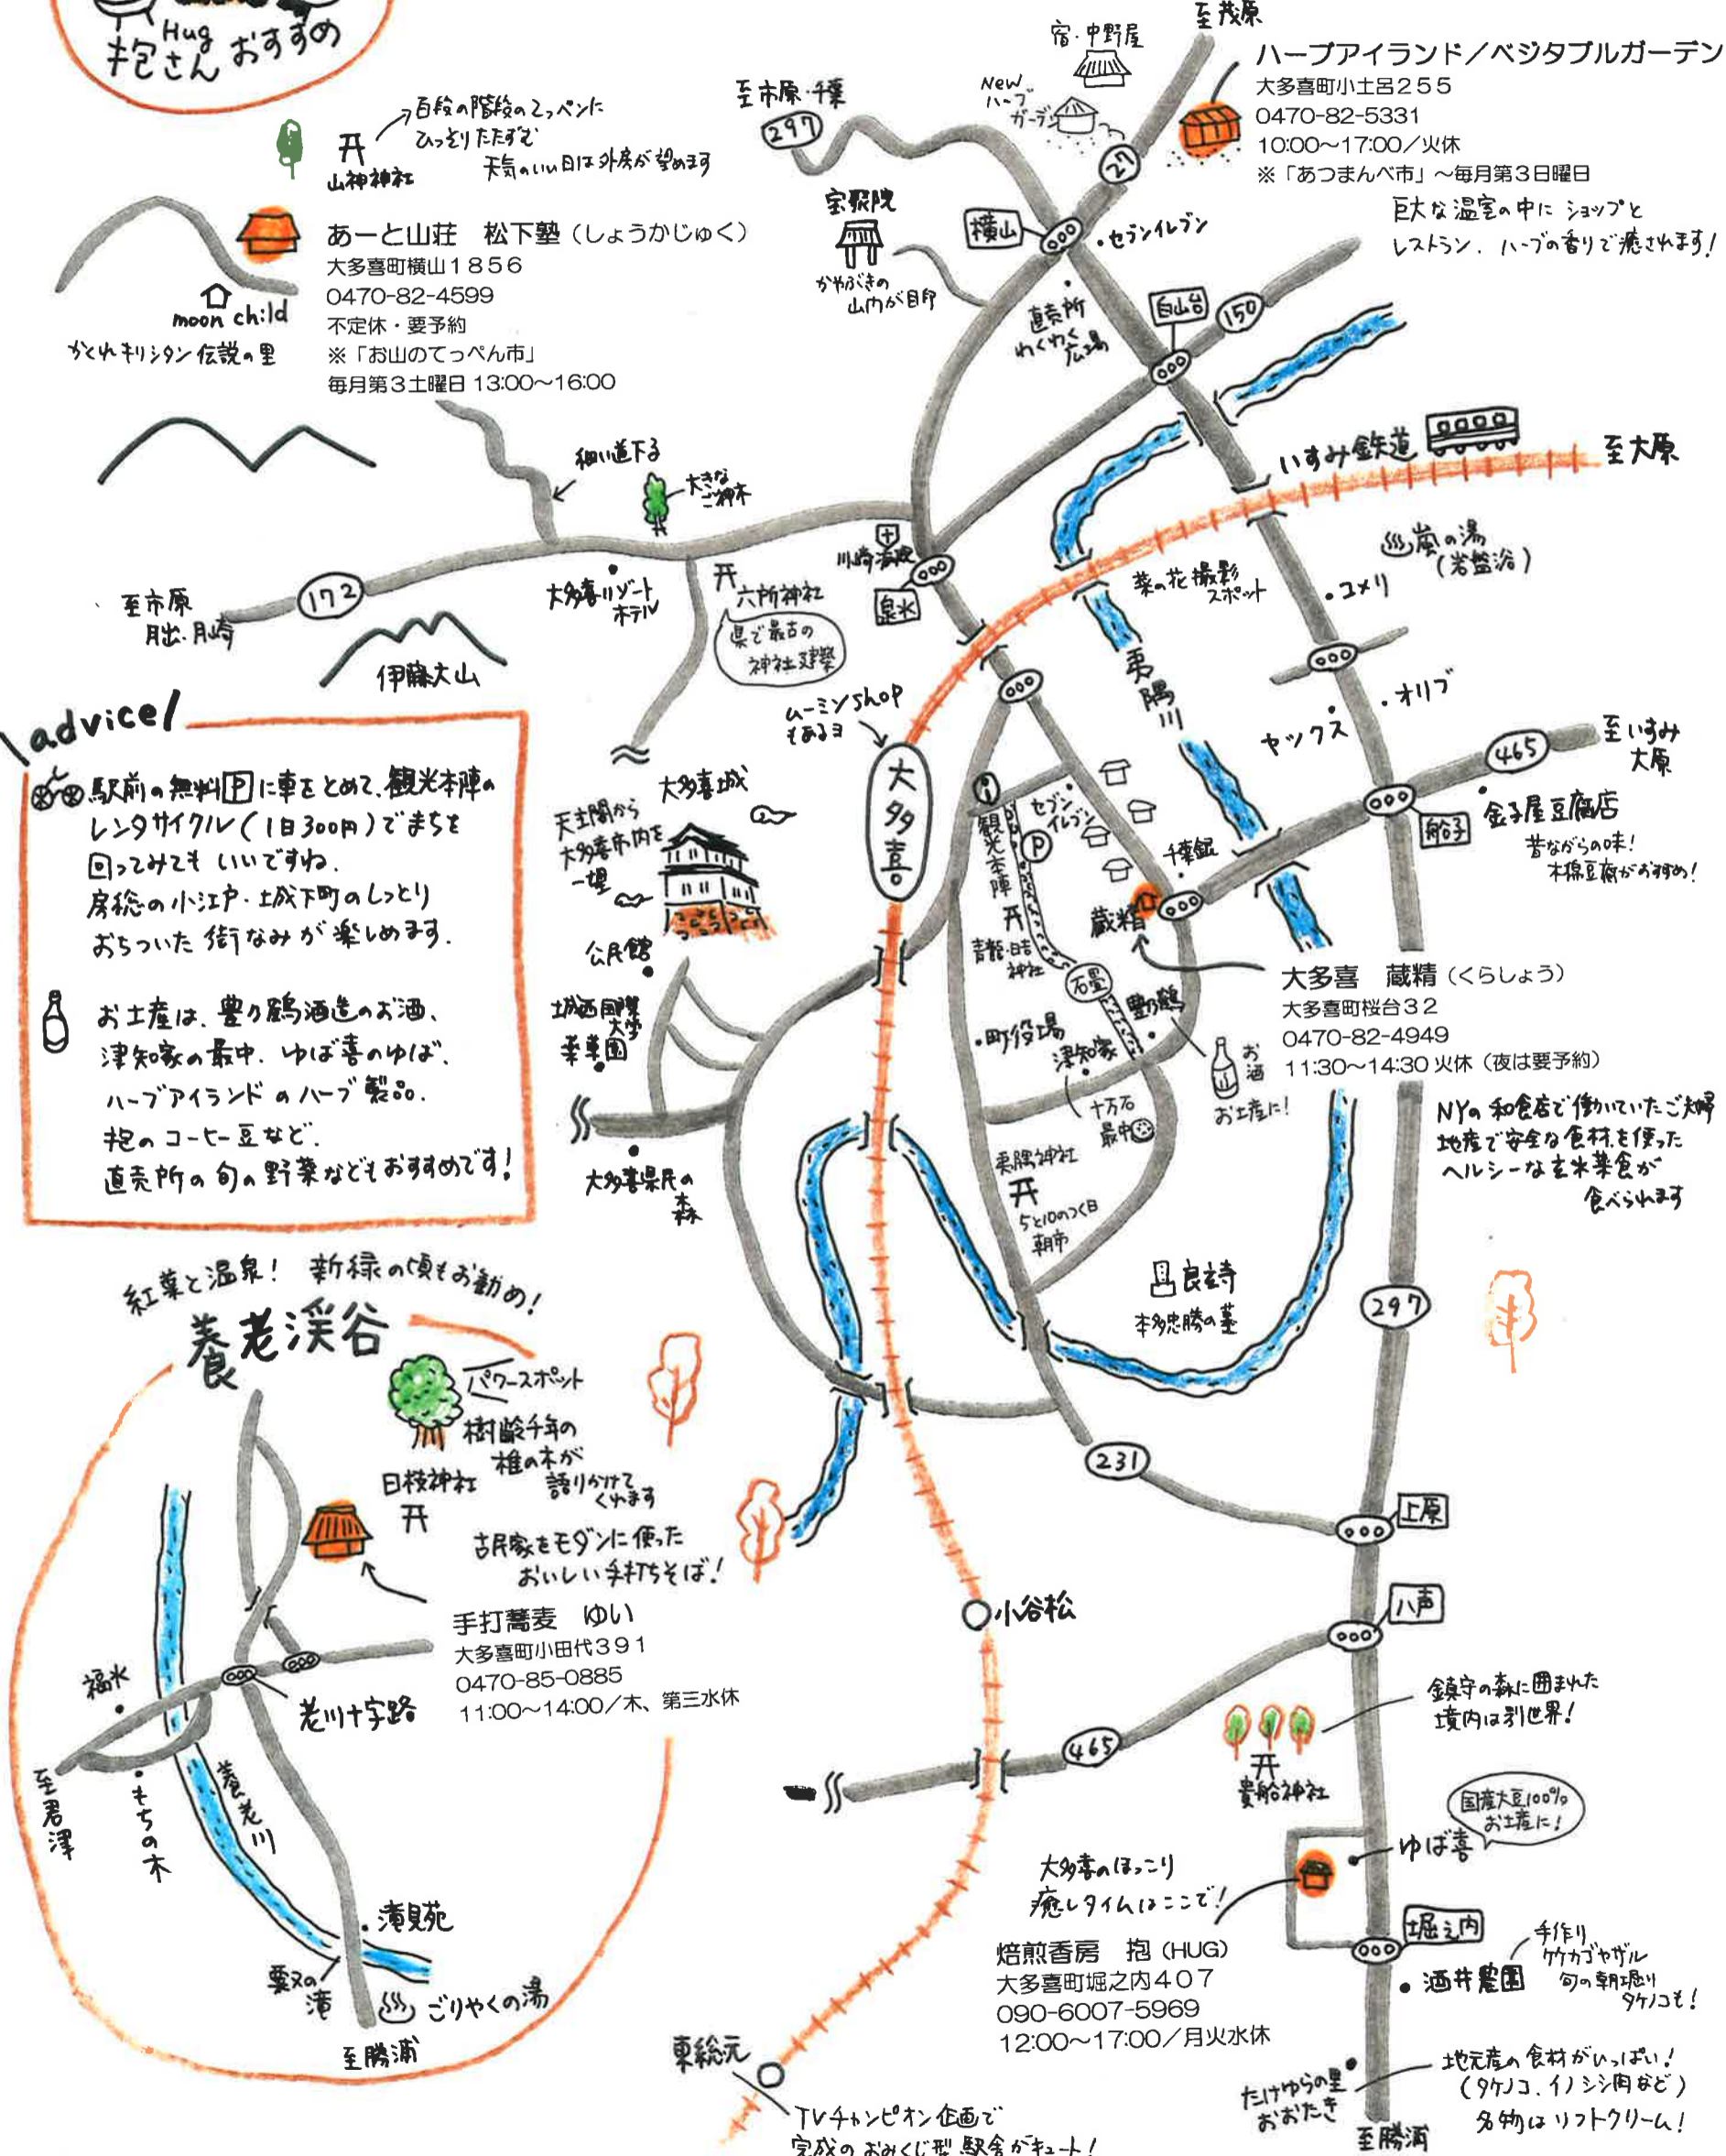 Hug
抱さん おすすめ
百段の階段のてっペンに
ひっそりたたずむ
天気のいい日は外房が望めます
山神神社
あーと山荘 松下塾（しょうかじゅく）
大多喜町横山１８５６
0470-82-4599
不定休・要予約
※「お山のてっぺん市」
毎月第３土曜日 13:00～16:00
moon child
かくれキリシタン伝説の里
宿・中野屋
New
ハーブ
ガーデン
至茂原
至市原・千葉
297
27
ハーブアイランド／ベジタブルガーデン
大多喜町小土呂２５５
0470-82-5331
10:00～17:00／火休
※「あつまんべ市」～毎月第３日曜日
巨大な温室の中に ショップと
レストラン、ハーブの香りで癒されます！
宝聚院
かやぶきの
山門が目印
横山
・セブンイレブン
直売所
わくわく
広場
白山台
150
いすみ鉄道
至大原
細い道下る
大きな
ご神木
172
至市原
月出・月崎
大多喜リゾート
ホテル
六所神社
県で最古の
神社建築
川崎病院
泉水
伊藤大山
菜の花撮影
スポット
嵐の湯
（岩盤浴）
・コメリ
・オリブ
ヤックス
夷隅川
465
至いすみ
大原
船子
金子屋豆腐店
昔ながらの味！
木綿豆腐がおすすめ！
advice
駅前の無料Ⓟに車をとめて、観光本陣の
レンタサイクル（1日300円）でまちを
回ってみても いいですね。
房総の小江戸・城下町のしっとり
おちついた 街なみが楽しめます。
お土産は、豊乃鶴酒造のお酒、
津知家の最中、ゆば喜のゆば、
ハーブアイランドのハーブ製品、
抱のコーヒー豆など、
直売所の旬の野菜などもおすすめです！
ムーミンshop
もあるヨ
大多喜
大多喜城
天主閣から
大多喜市内を
一望
公民館
城西国際
大学
薬草園
大多喜県民の
森
セブン
イレブン
観光本陣
P
千葉銀
蔵精
青龍・日吉
神社
石畳
豊乃鶴
・町役場
津知家
十万石
最中
お酒
お土産に！
大多喜 蔵精（くらしょう）
大多喜町桜台３２
0470-82-4949
11:30～14:30 火休（夜は要予約）
NYの和食店で働いていたご夫婦
地産で安全な食材を使った
ヘルシーな玄米菜食が
食べられます
夷隅神社
5と10のつく日
朝市
良玄寺
本多忠勝の墓
297
231
上原
八声
紅葉と温泉！ 新緑の頃もお勧め！
養老渓谷
パワースポット
樹齢千年の
椎の木が
語りかけて
くれます
日枝神社
古民家をモダンに使った
おいしい手打ちそば！
手打蕎麦 ゆい
大多喜町小田代３９１
0470-85-0885
11:00～14:00／木、第三水休
福水
老川十字路
至君津
・もちの木
養老川
・滝見苑
粟又の
滝
ごりやくの湯
至勝浦
小谷松
465
鎮守の森に囲まれた
境内は別世界！
貴船神社
国産大豆100%
お土産に！
ゆば喜
大多喜のほっこり
癒しタイムはここで！
焙煎香房 抱（HUG）
大多喜町堀之内４０７
090-6007-5969
12:00～17:00／月火水休
堀之内
・酒井農園
手作り
旬の朝堀り
タケノコも！
東総元
TVチャンピオン企画で
完成の おみくじ型 駅舎がキュート！
たけゆらの里
おおたき
地元産の食材がいっぱい！
（タケノコ、イノシシ肉など）
名物はソフトクリーム！
至勝浦